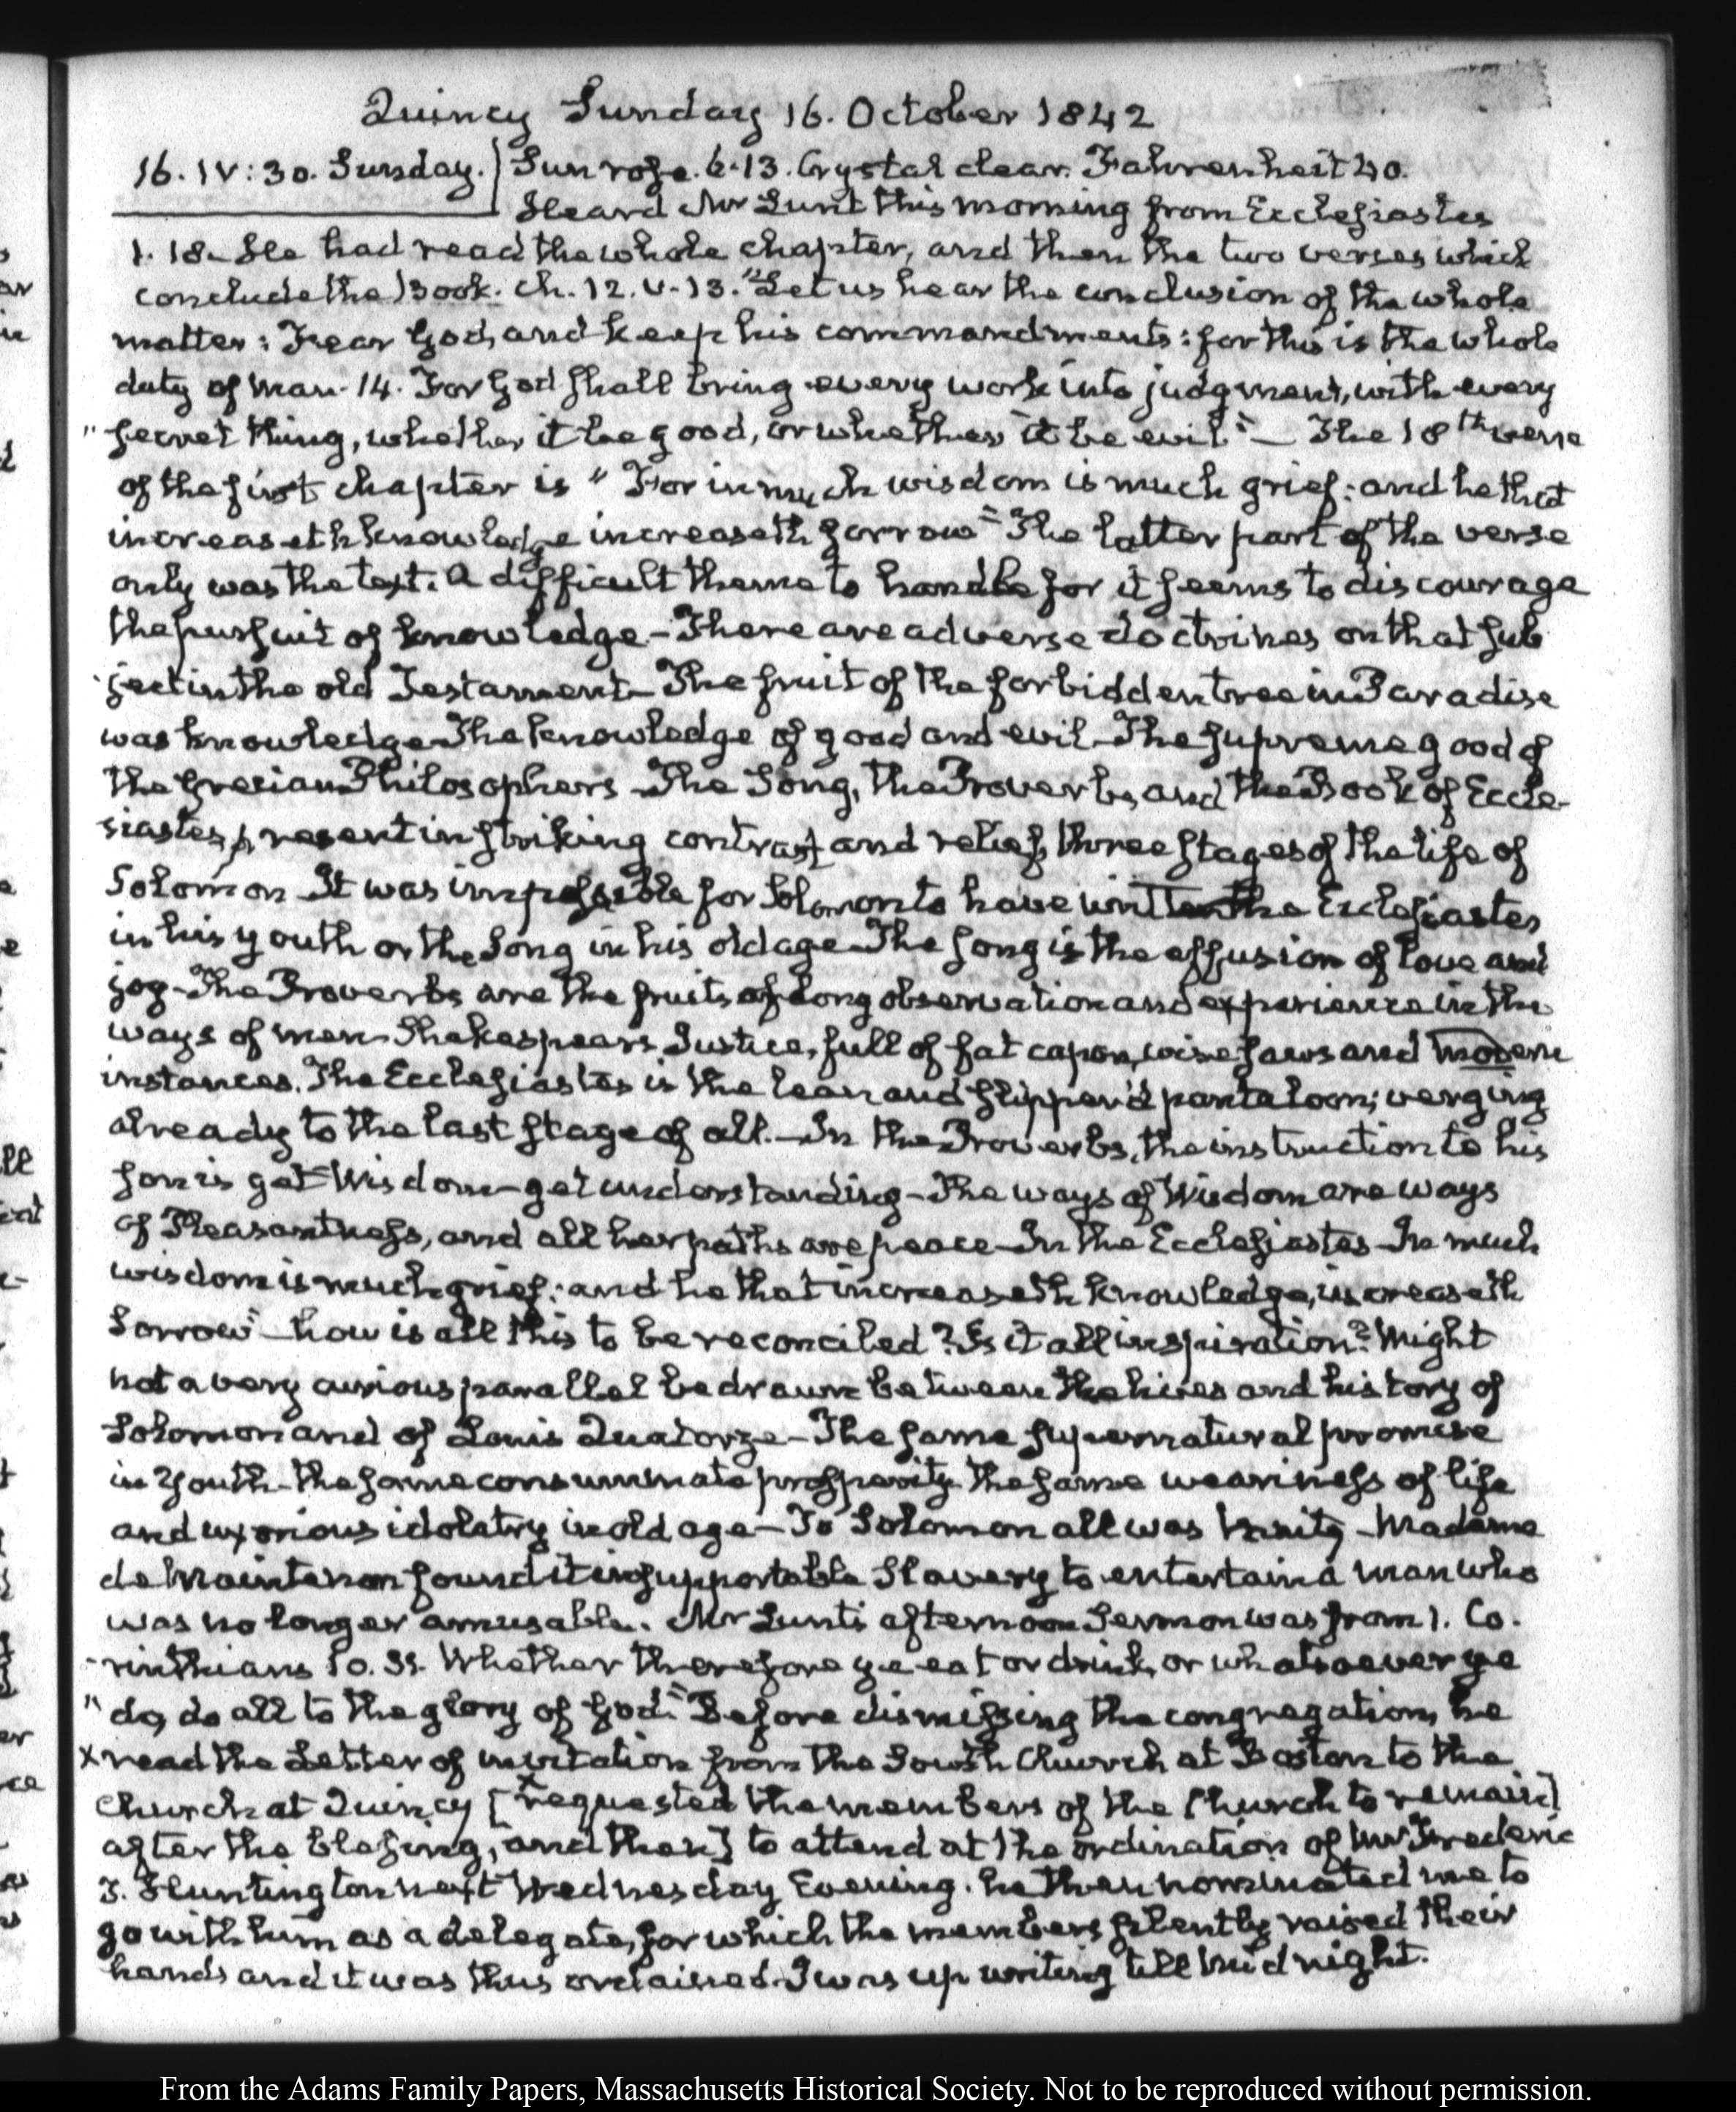 Quincy Sunday 16. October 1842
16. IV: 30. Sunday. Sun rose. 6.13. Crystal clear. Fahrenheit 40.
Heard Mr Lunt this morning from Ecclesiastes
1. 18. He had read the whole chapter, and then the two verses which
conclude the Book. ch. 12. v. 13. "Let us hear the conclusion of the whole
matter: Fear God, and keep his commandments: for this is the whole
duty of Man. 14. For God shall bring every work into judgment, with every
"secret thing, whether it be good, or whether it be evil" — The 18th verse
of the first chapter is "For in much wisdom is much grief: and he that
increaseth knowledge increaseth sorrow" The latter part of the verse
only was the text. A difficult theme to handle for it seems to discourage
the pursuit of knowledge - There are adverse doctrines on that sub
ject in the old Testament - The fruit of the forbidden tree in Paradise
was knowledge - The knowledge of good and evil - The supreme good of
the Grecian Philosophers - The Song, the Proverbs, and the Book of Eccle-
siastes, present in striking contrast and relief, three stages of the life of
Solomon - It was impossible for Solomon to have written the Ecclesiastes
in his youth or the Song in his old age - The Song is the effusion of love and
joy - The Proverbs are the fruits of long observation and experience in the
ways of men - Shakespears Justice, full of fat capon, wise saws and modern
instances. The Ecclesiastes is the lean and slipper'd pantaloon; verging
already to the last stage of all. - In the Proverbs, the instruction to his
son is get Wisdom - get understanding - The ways of Wisdom are ways
of Pleasantness, and all her paths are peace - In the Ecclesiastes - In much
wisdom is much grief: and he that increaseth knowledge, increaseth
Sorrow" - how is all this to be reconciled? Is it all inspiration? Might
not a very curious parallel be drawn between the lives and history of
Solomon and of Louis Quatorze - The same supernatural promise
in Youth - the same consummate prosperity - the same weariness of life
and uxorious idolatry in old age - To Solomon all was Vanity - Madame
de Maintenon found it insupportable Slavery to entertain a man who
was no longer amusable. Mr Lunt's afternoon Sermon was from 1. Co-
rinthians 10. 31. Whether therefore ye eat or drink, or whatsoever ye
"do, do all to the glory of God." Before dismissing the congregation, he
x read the Letter of invitation from the South Church at Boston to the
Church at Quincy [x requested the members of the Church to remain]
after the blessing, and then] to attend at the ordination of Mr Frederic
D. Huntington next Wednesday Evening. he then nominated me to
go with him as a delegate, for which the members silently raised their
hands and it was thus ordained. I was up writing till Midnight.
From the Adams Family Papers, Massachusetts Historical Society. Not to be reproduced without permission.